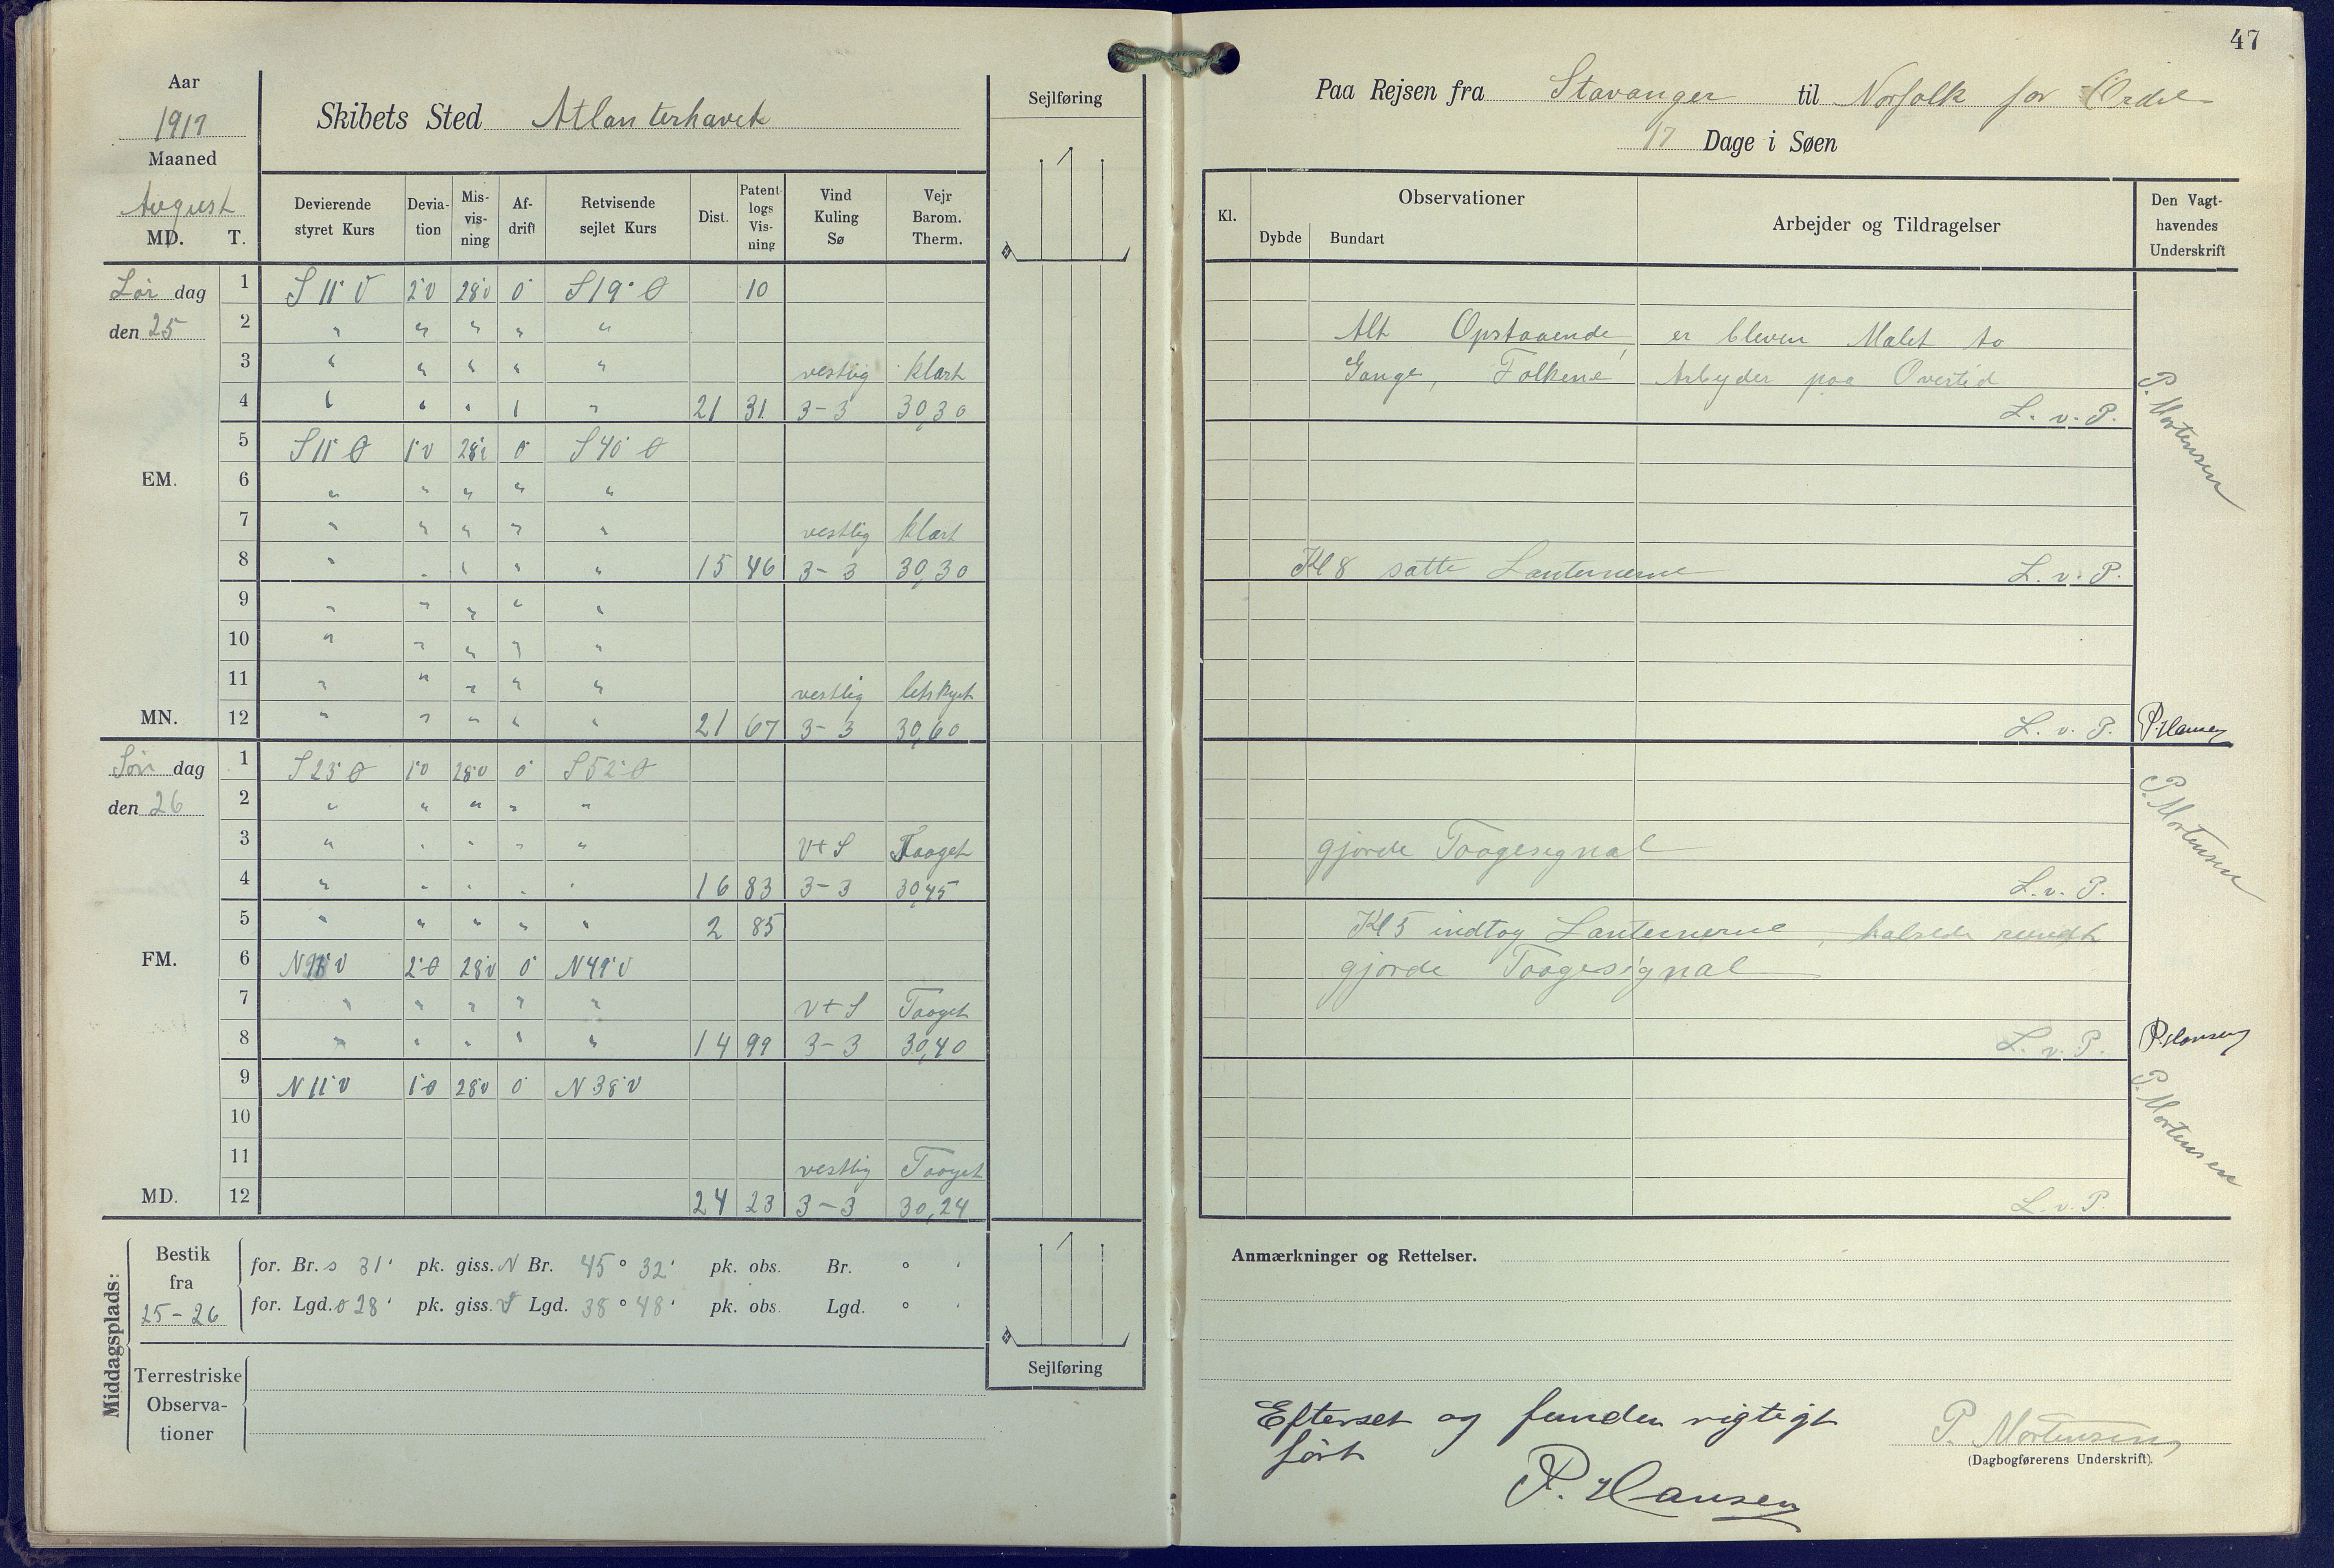 47
Aar
1917
Maaned
August
MD. T.
Skibets Sted Atlanterhavet
Sejlføring
Paa Rejsen fra Stavanger til Norfolk for Ordre
17 Dage i Søen
Devierende styret Kurs
Devia- tion
Mis- vis- ning
Af- drift
Retvisende sejlet Kurs
Dist.
Patent- logs Vis- ning
Vind Kuling Sø
Vejr Barom. Therm.
Kl.
Observationer
Dybde Bundart
Arbejder og Tildragelser
Den Vagt- havendes Underskrift
Lør dag 1 S 11° V 2°V 28°V 0° S19°Ø 10
den 25 2 " " " " "
3 " " " " " vestlig klart
4 " " " " " 21 31 3-3 30,30
5 S11°Ø 1°V 28°V 0° S40°Ø
EM. 6 " " " " "
7 " " " " " vestlig klart
8 " " " " " 15 46 3-3 30,30
9 " " " " "
10 " " " " "
11 " " " " " vestlig letskyet
MN. 12 " " " " " 21 67 3-3 30,60
Søn dag 1 S23°Ø 1°V 28°V 0° S52°Ø
den 26 2 " " " " "
3 " " " " " V t S Taaget
4 " " " " " 16 83 3-3 30,45
5 " " " " " 2 85
FM. 6 V 2°Ø 28°V 0° N41°V
7 " " " " " V t S Taaget
8 " " " " " 14 99 3-3 30,40
9 N11°V 1°Ø 28°V 0° N38°V
10
11 vestlig Taaget
MD. 12 24 23 3-3 30,24
Alt Opstaaende er bleven Malet to
Gange, Folkene Arbejder paa Overtid
L. v. P.
P. Mortensen
Kl 8 satte Lanternerne L. v. P.
L. v. P. P. Hansen
gjorde Taagesignal
L. v. P.
P. Mortensen
Kl 5 indtog Lanternerne, halsede rundt
gjorde Taagesignal
L. v. P. P. Hansen
P. Mortensen
L. v. P.
Middagsplads:
Bestik fra 25-26
for. Br. S 31' pk. giss. N Br. 45° 32' pk. obs. Br. ° '
for. Lgd. Ø 28' pk. giss. V Lgd. 38° 48' pk. obs. Lgd. ° '
Terrestriske
Observa-
tioner
Sejlføring
Anmærkninger og Rettelser.
Efterset og funden rigtigt
ført
P. Hansen
P. Mortensen
(Dagbogførerens Underskrift).